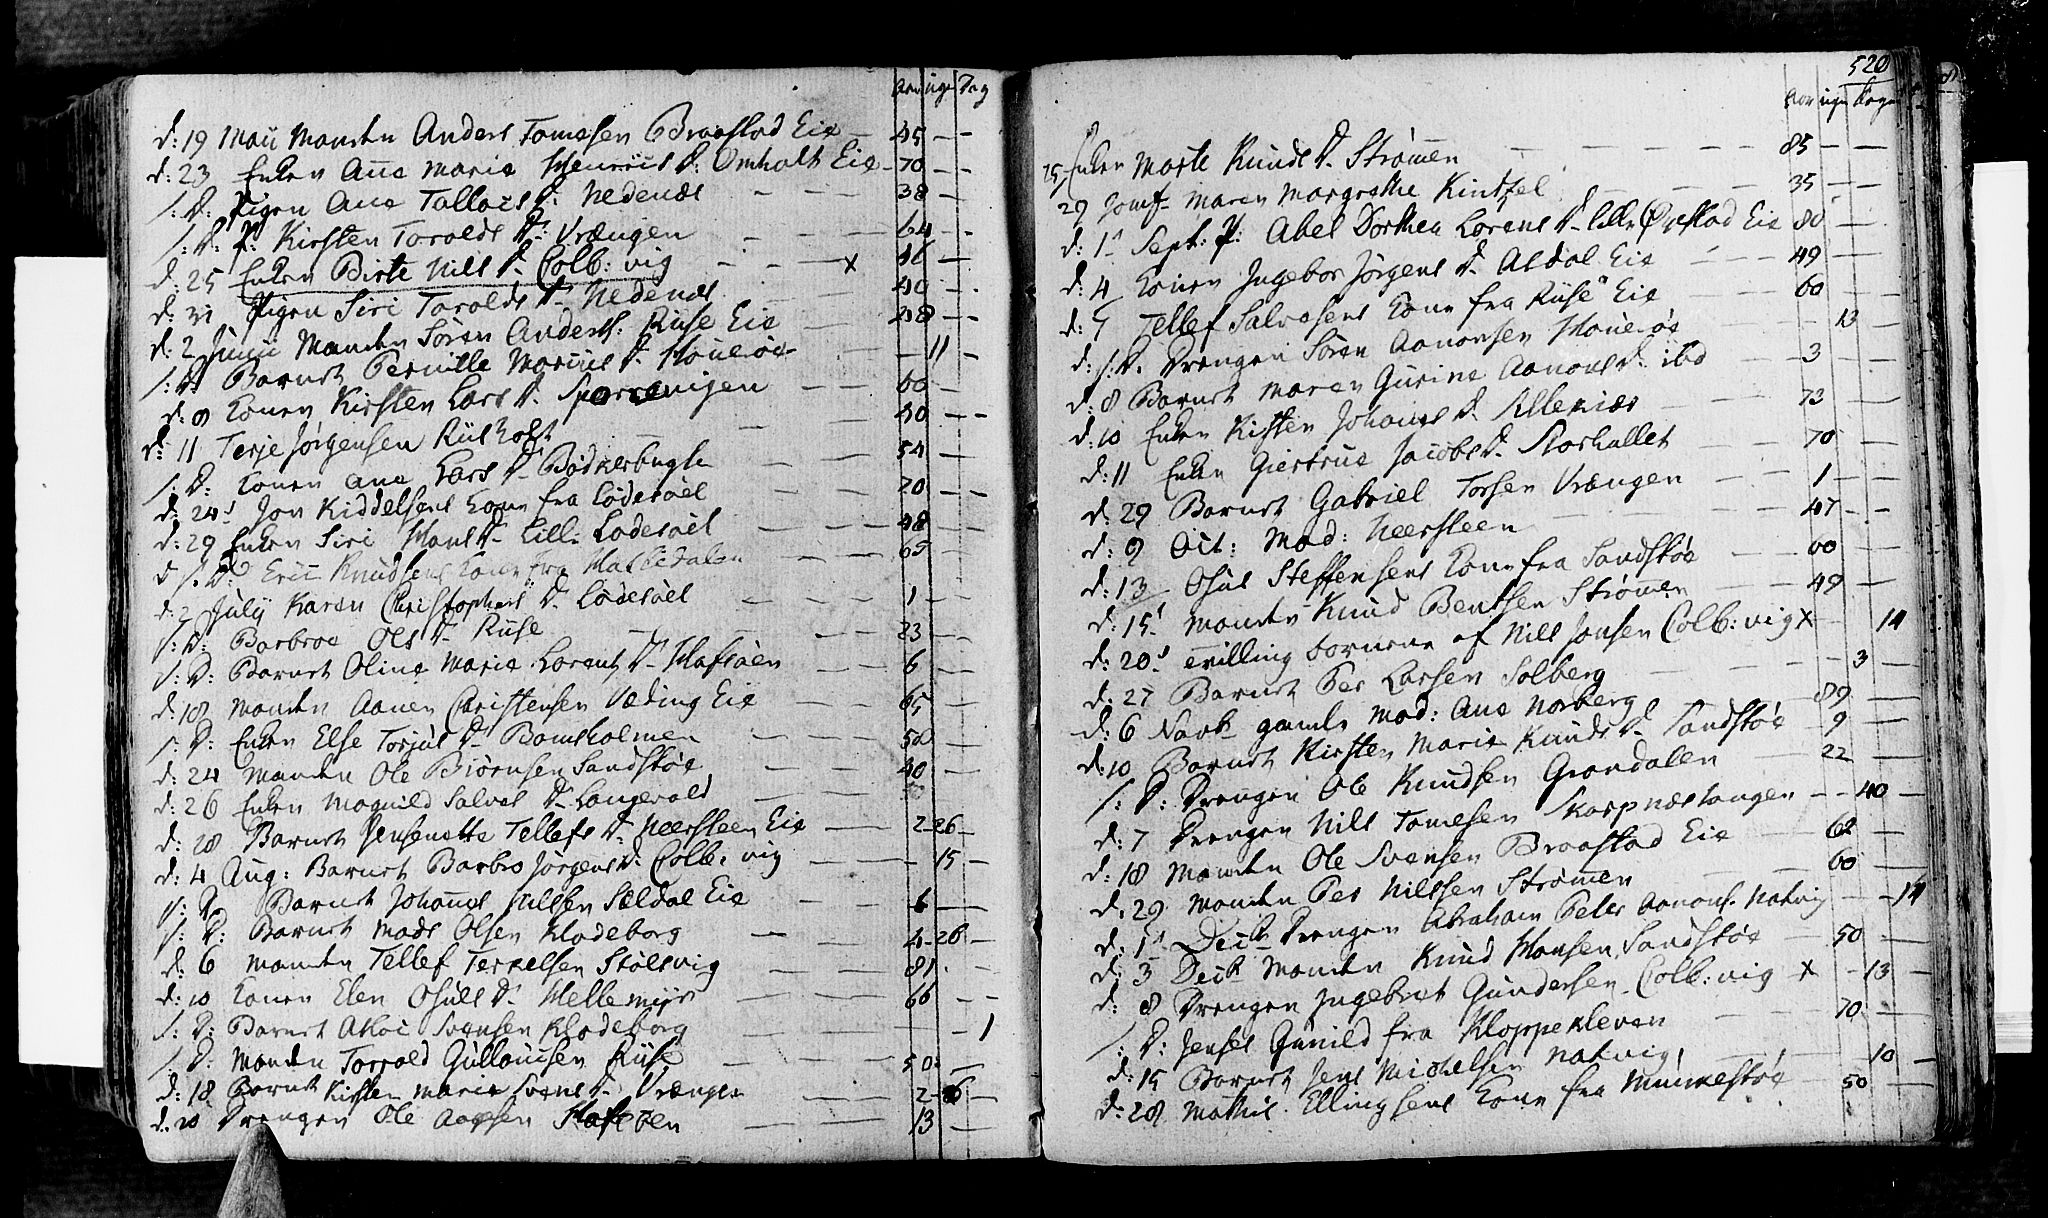 Aar uger Dag
d: 19 Maii Manden Anders Tomesen Braastad Eie — 45 — —
d: 23 Enken Ane Maria Henrics D: Omholt Eie — 70 — —
/: D: Pigen Ane Tallacs D. Nedenæs — — 38 — —
/: D: P: Kirsten Torolds D: Vrængen — — — 64 — —
d: 25 Enken Birte Nils D. Colb: vig — — — x 46 —
d: 31 Pigen Siri Torolds D. Nedenæs — — 40 —
d: 2 Junii Manden Søren Anders: Riise Eie — 48 — —
/: D: Barnet Pernille Marius D. Houeröe — — 11 —
d: 9 Konen Kirsten Lars D. Sporevigen — — 60 —
d: 11 Terje Jørgensen Riisholt — — 40 — —
/: D: Konen Ane Lars D. Bödkerbugten — — 54 — —
d: 24 Jon Kiddelsens Kone fra Lödesöel 20 — —
d: 29 Enken Siri Hans D. Lille Lodesöel — — — 48 —
d /: D: Eric Knudsens Kone fra — — 65 —
d: 2 July Karen Christophers D. Lödesöel — — 1 — —
/: D: Barbroe Ols D. Riise — — — 23 — —
/: D: Barnet Oline Maria Lorentz D. Hafsöen — — 6 —
d: 18 Manden Aanen Christensen Væding Eie — — 65 —
/: D: Enken Else Torjus D. Bomsholmen — — 50 — —
d: 24 Manden Ole Biörnsen Sandstöe — — 40 — —
d: 26 Enken Magnild Salves D. Langevold — —
d: 28 Barnet Jensenette Tellefs D. Neersteen Eie — 2 — 26 —
d: 4 Aug: Barnet Barbro Jørgens D. Colb: vig — — 15 —
/: D. Barnet Johannes Nilsen Sældal Eie — — 6 —
/: D: Barnet Mads Olsen Klodeborg — 4 — 26 —
d: 6 Manden Tellef Terkelsen Stölsvig — — 81 — —
d: 10 Konen Elen Osuls D. Hellemyr — — 66 — —
/: D: Barnet Akoi Svensen Klodeborg — — — 1
/: D: Manden Torrald Gullouisen Riise — — 50 —
d: 18 Barnet Kirsten Maria Svens D. Vrængen — — 2 — 26 —
d. 20 Drengen Ole Aagesen Hafsöen — — 13 —
520
Aar uger Dage
25 Enken Marte Knuds D. Strömen — — — 85 — —
29 Jomf. Maren Margrethe Kintzel — — 35 — —
d: 1 Sept: P: Abel Dorthea Lorens D. lille Örestad Eie 80 —
d: 4 Konen Ingebor Jörgens D. Asdal Eie — — 49 —
d: 5 Tellef Salvesens Kone fra Riise Eie — — 60 —
d: /: D. Drengen Sören Aanonsen Houeröe — — 13 —
d: 8 Barnet Maren Gurine Aanons D. ibd — — 3 —
d: 10 Enken Kisten Johans D. — — 73 —
d: 11 Enken Giertrue Jacobs D. Storhallet — — 70 —
d: 29 Barnet Gabriel Torsen Vrængen — — 1 — —
d: 9 Oct: Mad: Neersteen — — — 47 —
d: 13 Osul Steffensens Kone fra Sandstöe — — 60 —
d: 15 Manden Knud Bentsen Strömen — — 49 — —
d: 20 tvilling börnene af Nils Jonsen Colb: vig x — — 14
d: 27 Barnet Per Larsen Solberg — — 3 —
d: 6 Novb gamle Mad: Ane Norberg — — 89 —
d: 10 Barnet Kirsten Maria Knuds D. Sandstöe — 9 —
/: D: Drengen Ole Knudsen Grandalen — 22 —
d: 7 Drengen Nils Tomesen Skarpnæstangen — — 40 —
d: 18 Manden Ole Svensen Braastad Eie — 62 —
d. 29 Manden Per Nilssen Strömen — — 60 —
d: 1 Decb Drengen Abraham Peter Aanons. Natvig — — 14
d: 3 Decb Manden Knud Hansen Sandstöe — 50 —
d: 8 Drengen Ingebret Gundersen Colb: vig x — 13 —
/: D: Jenses Gunild fra Kloppekleven — — 70 —
d: 15 Barnet Jens Michelsen Natvig — — 10 —
d: 28 Mathis Ellingsens Kone fra Munkestöe — 50 —